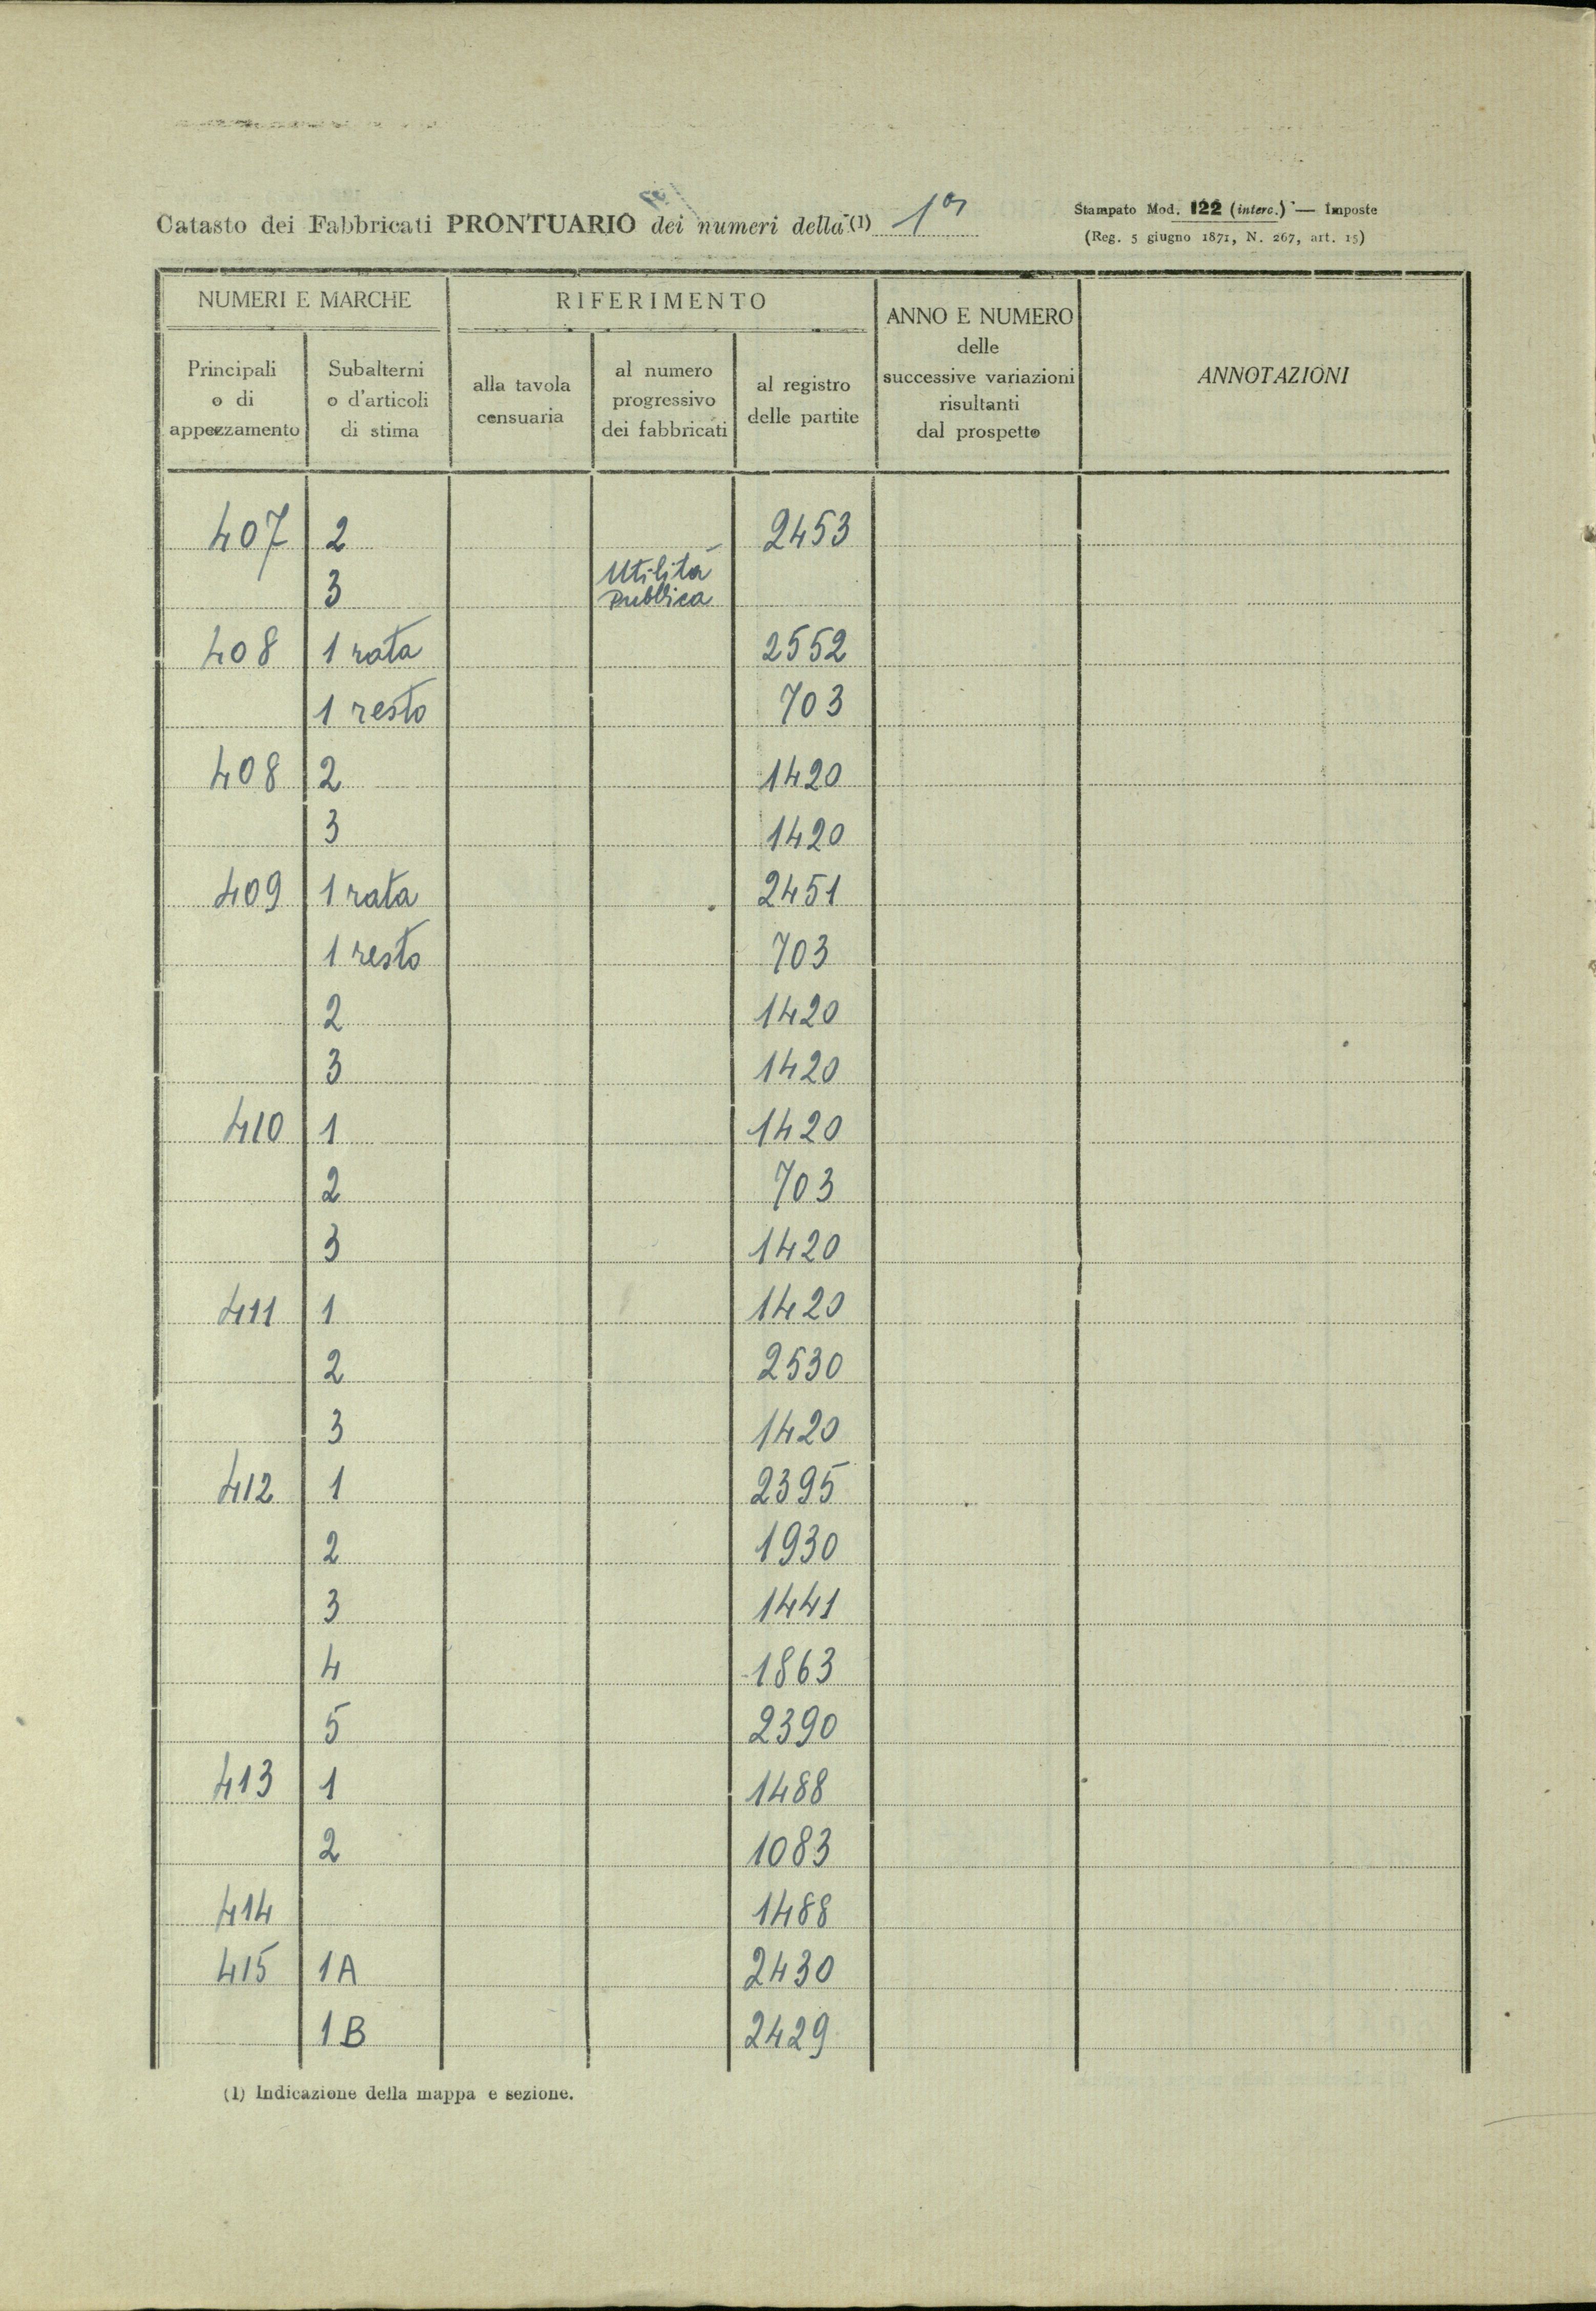 Catasto dei Fabbricati PRONTUARIO dei numeri della (1)
Stampato Mod. 122 (interc.) — Imposte
(Reg. 5 giugno 1871, N. 267, art. 15)
NUMERI E MARCHE
RIFERIMENTO
ANNO E NUMERO
delle
successive variazioni
risultanti
dal prospetto
ANNOTAZIONI
Principali
o di
appezzamento
Subalterni
o d'articoli
di stima
alla tavola
censuaria
al numero
progressivo
dei fabbricati
al registro
delle partite
407 2 2453
3 Utilità
Pubblica
408 1 rata 2552
1 resto 703
408 2 1420
3 1420
409 1 rata 2451
1 resto 703
2 1420
3 1420
410 1 1420
2 703
3 1420
411 1 1420
2 2530
3 1420
412 1 2395
2 1930
3 1441
4 1863
5 2390
413 1 1488
2 1083
414 1488
415 1A 2430
1B 2429
(1) Indicazione della mappa e sezione.